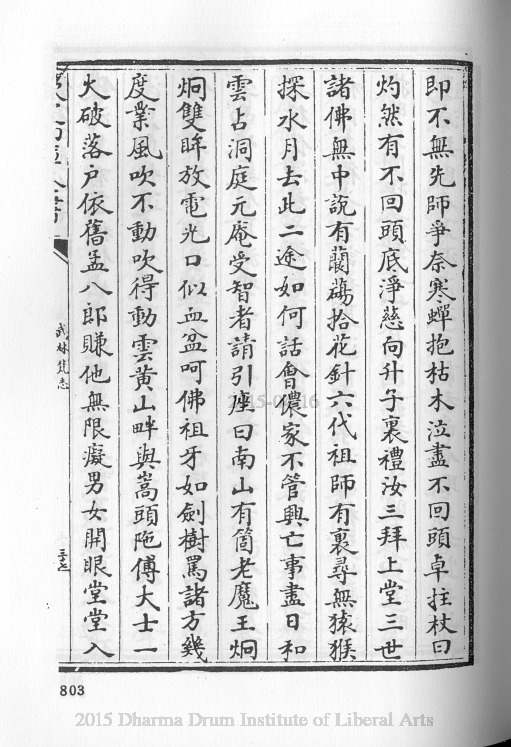 即不無先師爭奈寒蟬抱枯木泣盡不回頭卓拄杖曰
灼然有不回頭底淨慈向升子裏禮汝三拜上堂三世
諸佛無中說有䕞𦿆拾花針六代祖師有裏尋無猿猴
探水月去此二途如何話會儂家不管興亡事盡日和
雲占洞庭元庵受智者請引座曰南山有箇老魔王烱
烱雙眸放電光口似血盆呵佛祖牙如劍樹罵諸方幾
度業風吹不動吹得動雲黃山畔與嵩頭陁傅大士一
火破落戶依舊孟八郎賺他無限癡男女開眼堂堂入
武林梵志
三十七
803
2015 Dharma Drum Institute of Liberal Arts